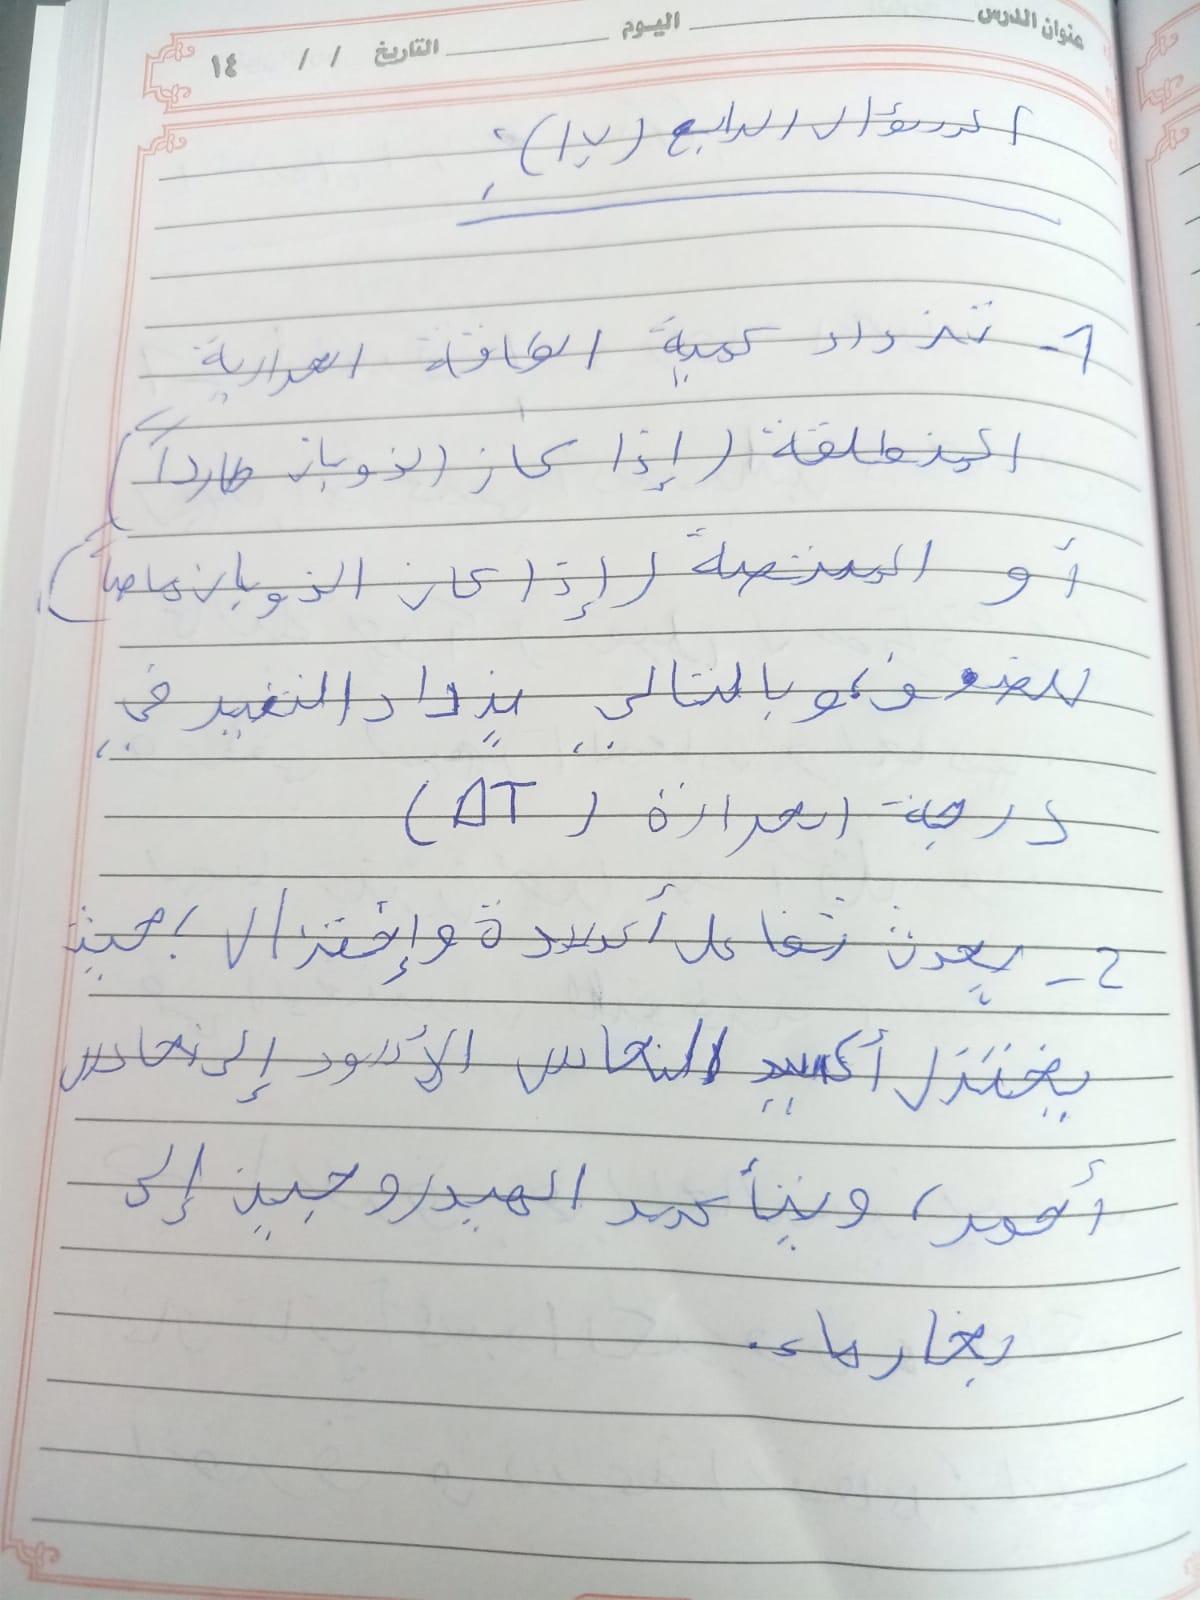 عنوان الدرس ــــــ اليوم ــــــ التاريخ / / ١٤
السؤال الرابع (ب):
1- تزداد كمية الطاقة الحرارية
المنطلقة (إذا كان الذوبان طارداً)
أو الممتصة (إذا كان الذوبان ماصاً)
للضعف، وبالتالي يزداد التغير في
درجة الحرارة (ΔT)
2- يحدث تفاعل أكسدة وإختزال، حيث
يختزل أكسيد النحاس الأسود إلى نحاس
أحمر، ويتأكسد الهيدروجين إلى
بخار ماء.